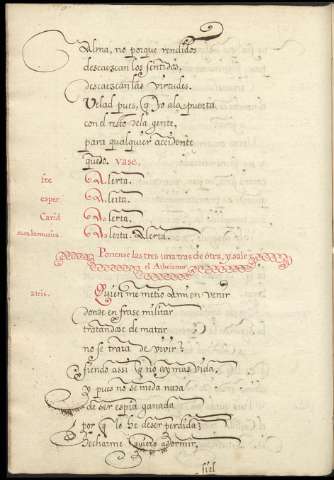 Alma, no porque rendidos
descaezcan los sentidos,
descaezcan las virtudes.
Velad pues, q yo a la puerta
con el resto dela gente,
para qualquier accidente
quedo. vase.
fee Alerta.
esper. Alerta.
Carid Alerta.
Alerta. Alerta.
Ponense las tres una tras de otra, y sale
el
Quien me metio a mi en venir
donde en frase militar
tratandose de matar
no se trata de vivir?
siendo assi q no ay mas vida,
y pues no se meda nada
de ser espia ganada
por q lo he de ser perdida?
Dechaime quiero adormir,
fiel